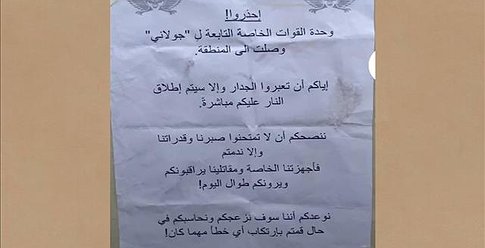 إحذروا!
وحدة القوات الخاصة التابعة ل "جولاني"
وصلت الى المنطقة.
إياكم أن تعبروا الجدار وإلا سيتم إطلاق
النار عليكم مباشرةً.
ننصحكم أن لا تمتحنوا صبرنا وقدراتنا
وإلا ندمتم
فأجهزتنا الخاصة ومقاتلينا يراقبونكم
ويرونكم طوال اليوم!
نوعدكم أننا سوف نزعجكم ونحاسبكم في
حال قمتم بإرتكاب أي خطأ مهما كان!